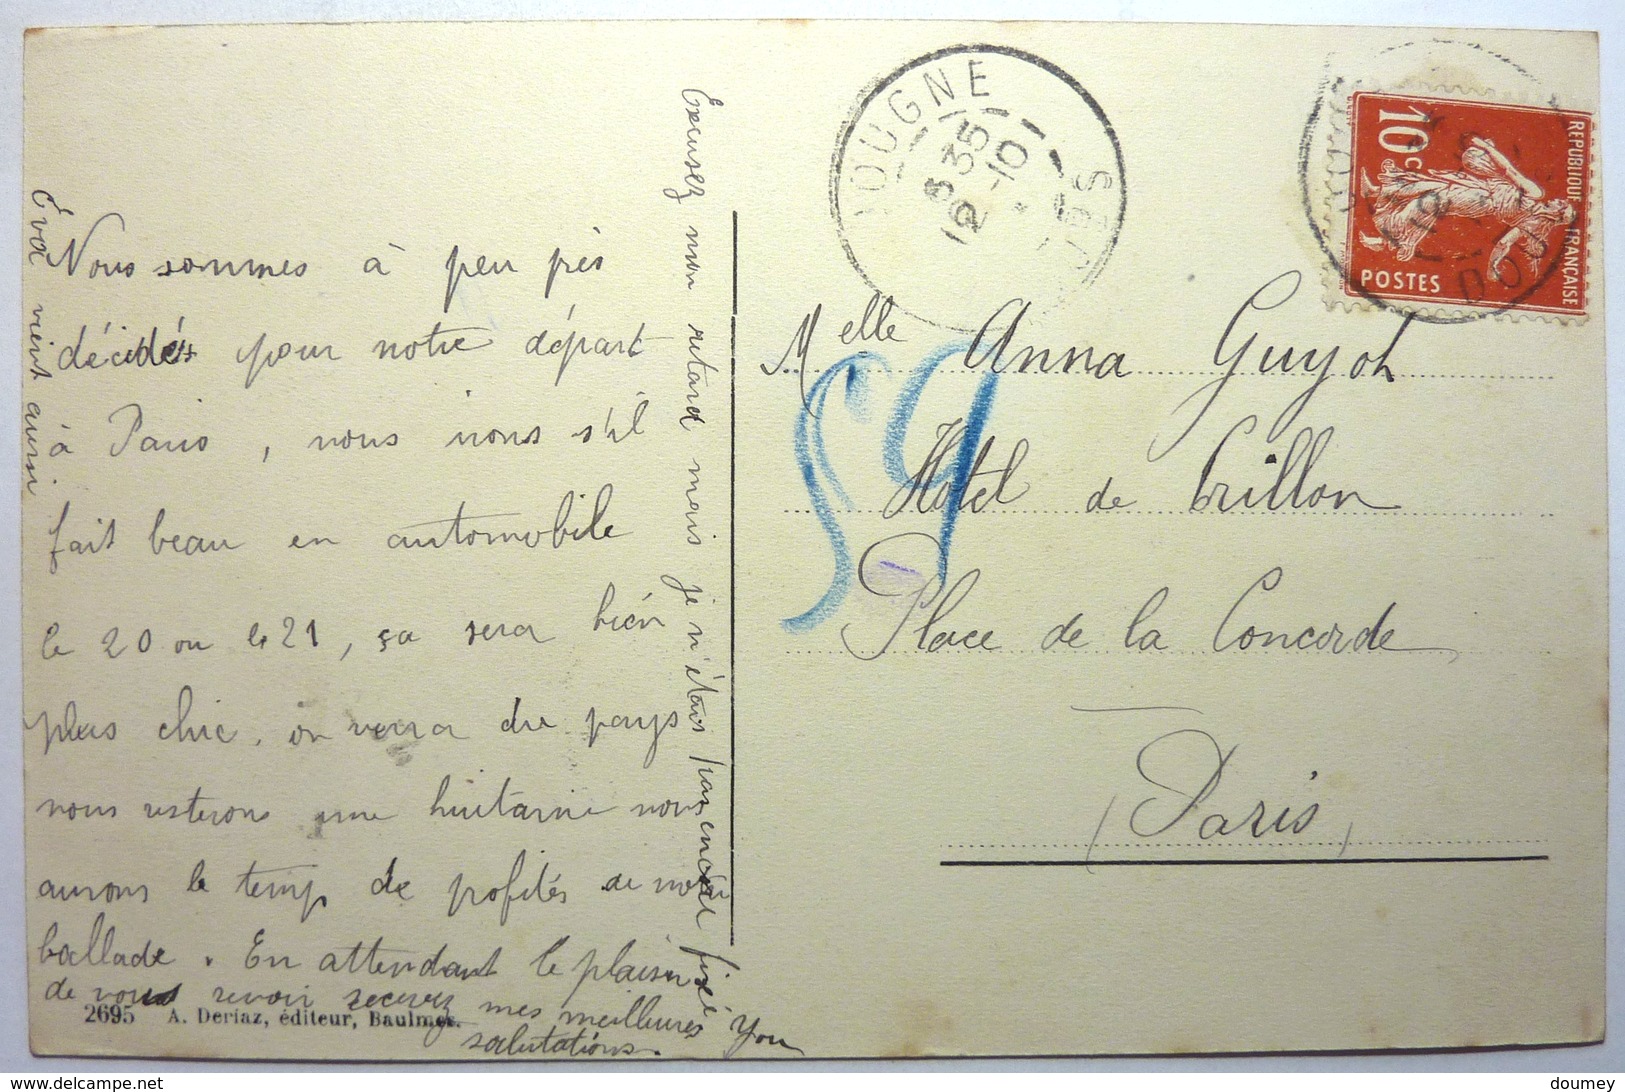 Nous sommes à peu près
décidés pour notre départ
à Paris, nous irons s'il
fait beau en automobile
le 20 ou le 21, ça sera bien
plus chic, on verra du pays
nous resterons une huitaine nous
aurons le temp de profités de notre
ballade. En attendant le plaisir
de vous revoir recevez mes meilleures
salutations.
You
Excusez mon retard mais je n'étais pas encore fixé
Eva vient aussi
2695 A. Deriaz, éditeur, Baulmes.
JOUGNE
8 35
12 -10
DOUBS
REPUBLIQUE FRANÇAISE
10c
POSTES
DOU
59
Melle Anna Guyot
Hotel de Crillon
Place de la Concorde
Paris
delcampe.net
doumey